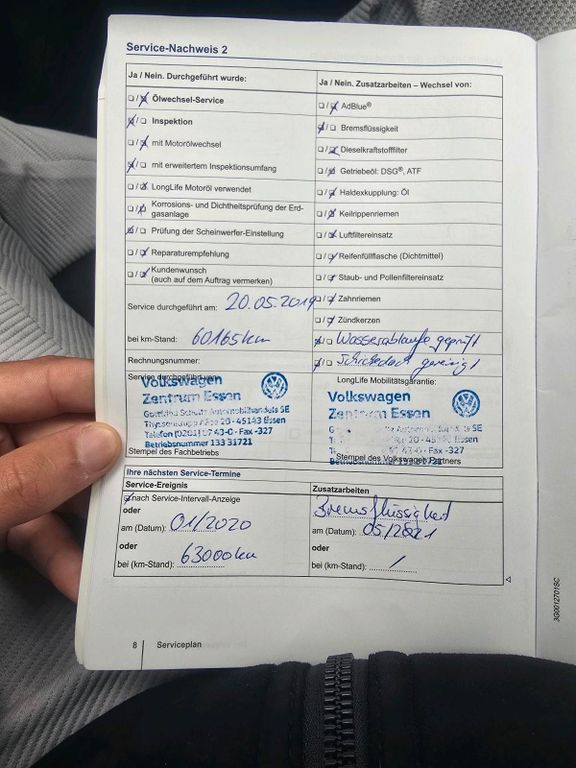 Service-Nachweis 2
Ja / Nein. Durchgeführt wurde:
Ölwechsel-Service
Inspektion
mit Motorölwechsel
mit erweitertem Inspektionsumfang
LongLife Motoröl verwendet
Korrosions- und Dichtheitsprüfung der Erd-
gasanlage
Prüfung der Scheinwerfer-Einstellung
Reparaturempfehlung
Kundenwunsch
(auch auf dem Auftrag vermerken)
Service durchgeführt am: 20.05.2019
bei km-Stand: 60165km
Rechnungsnummer:
Service durchgeführt von:
Volkswagen
Zentrum Essen
Gottfried Schultz Automobilhandels SE
45143 Essen
Telefon (0201) 8743-0 - Fax -327
Betriebsnummer 133 31721
Stempel des Fachbetriebs
Ja / Nein. Zusatzarbeiten – Wechsel von:
AdBlue®
Bremsflüssigkeit
Dieselkraftstofffilter
Getriebeöl: DSG®, ATF
Haldexkupplung: Öl
Keilrippenriemen
Luftfiltereinsatz
Reifenfüllflasche (Dichtmittel)
Staub- und Pollenfiltereinsatz
Zahnriemen
Zündkerzen
Wasserabläufe geprüft
Schiebedach gereinigt
LongLife Mobilitätsgarantie:
Volkswagen
Zentrum Essen
Stempel des Volkswagen Partners
Ihre nächsten Service-Termine
Service-Ereignis
nach Service-Intervall-Anzeige
oder
am (Datum): 01/2020
oder
bei (km-Stand): 63000km
Zusatzarbeiten
Bremsflüssigkeit
am (Datum): 05/2021
oder
bei (km-Stand): /
8 Serviceplan
3G0012701SC